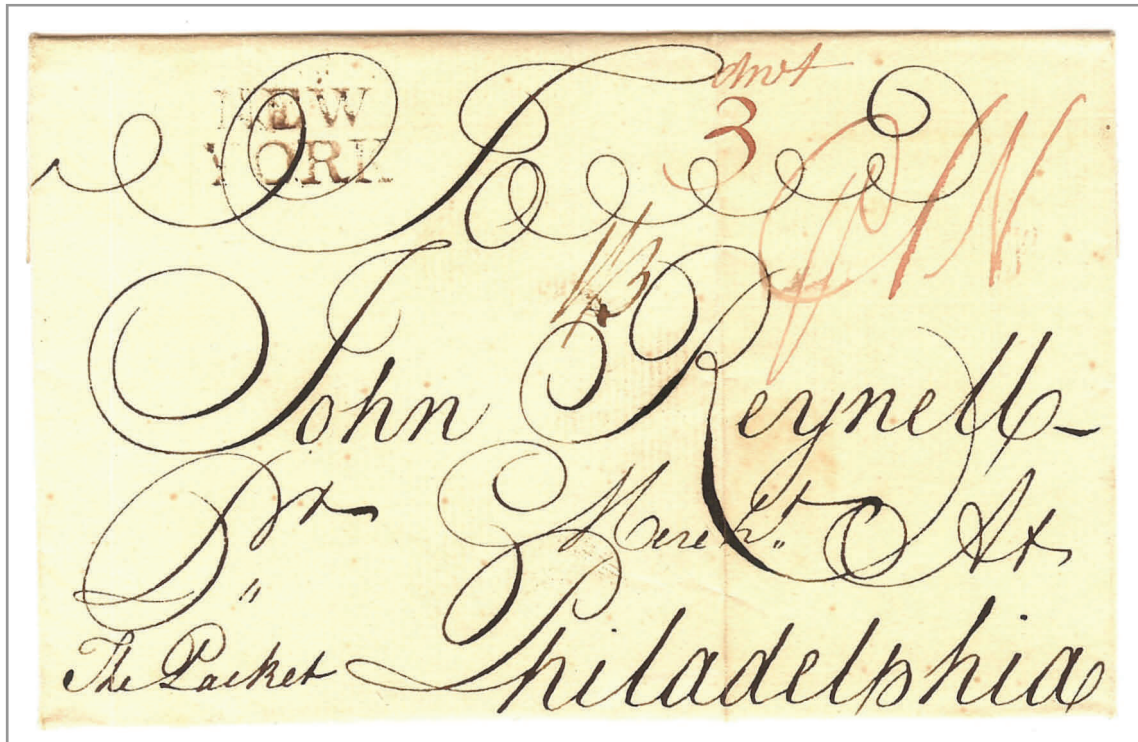 NEW
YORK
dwt
3
To
1/3
John Reynell
Pr Mercht. At
The Packet Philadelphia